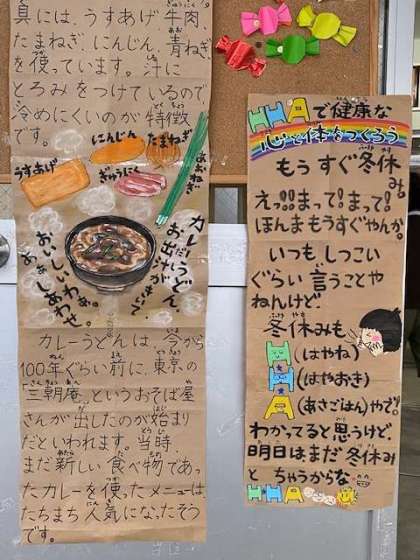 具には、うすあげ、牛肉、
たまねぎ、にんじん、青ねぎ
を使っています。汁に
とろみをつけているので、
冷めにくいのが特徴
です。
にんじん
たまねぎ
あおねぎ
うすあげ
ぎゅうにく
カレーうどん
お出汁がきいて
おいしいわぁ。
あぁしあわせ。
カレーうどんは、今から
100年ぐらい前に、東京の
三朝庵、というおそば屋
さんが出したのが始まり
だといわれます。当時、
まだ新しい食べ物であっ
たカレーを使ったメニューは、
たちまち人気になったそう
です。
HHAで健康な
心と体をつくろう
もうすぐ冬休み。
えっ!!まって!まって!
ほんまもうすぐやんか。
いつもしつこい
ぐらい言うことや
ねんけど、
冬休みも
H(はやね)
H(はやおき)
A(あさごはん)やで。
わかってると思うけど、
明日はまだ冬休み
とちゃうからな
HHA